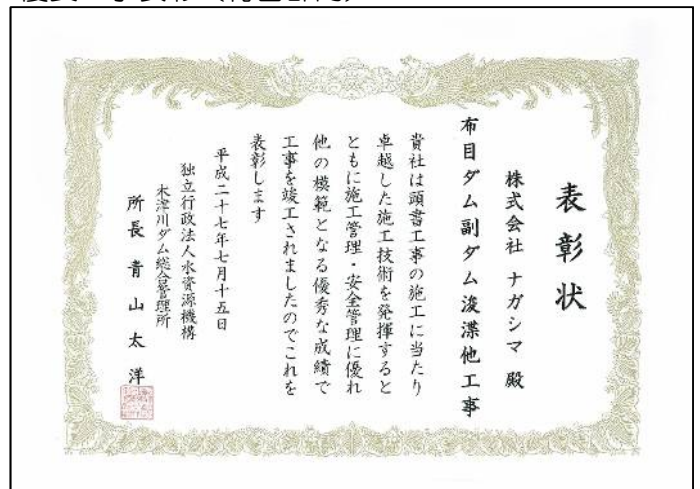 表彰状
株式会社 ナガシマ 殿
布目ダム副ダム浚渫他工事
貴社は頭書工事の施工に当たり
卓越した施工技術を発揮すると
ともに施工管理・安全管理に優れ
他の模範となる優秀な成績で
工事を竣工されましたのでこれを
表彰します
平成二十七年七月十五日
独立行政法人水資源機構
木津川ダム総合管理所
所長 青山太洋